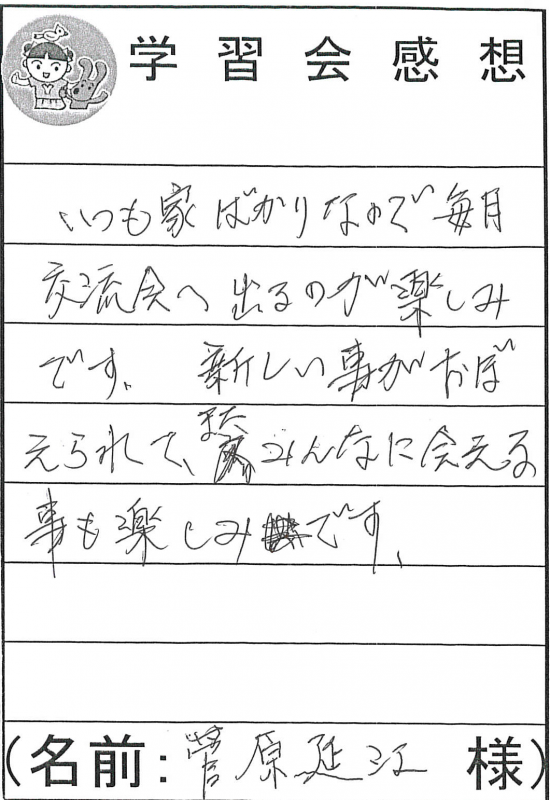 学習会感想
いつも家ばかりなので毎月
交流会へ出るのが楽しみ
です、新しい事がおぼ
えられて、またみんなに会える
事も楽しみです、
(名前:菅原延江 様)